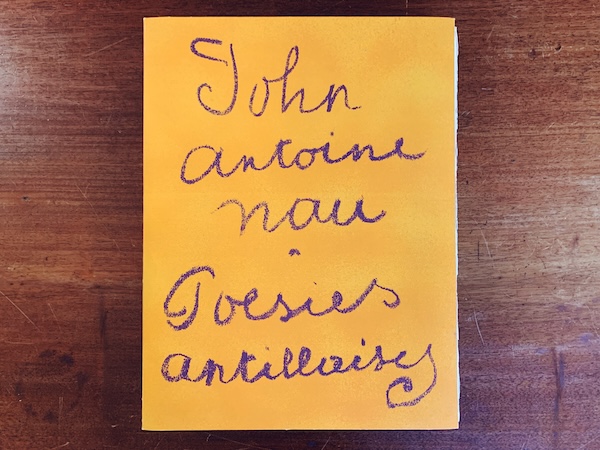 John
antoine
nau
-
Poesies
antillaises